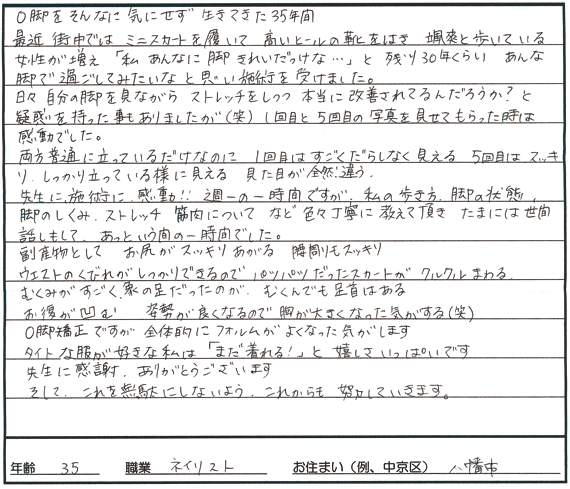 O脚をそんなに気にせず生きてきた35年間
最近街中では ミニスカートを履いて 高いヒールの靴をはき 颯爽と歩いている
女性が増え 「私 あんなに脚 きれいだっけな…」と 残り30年くらい あんな
脚で過ごしてみたいなと思い施術を受けました。
日々自分の脚を見ながら ストレッチをしつつ 本当に改善されてるんだろうか?と
疑惑を持った事もありましたが(笑) 1回目と5回目の写真を見せてもらった時は
感動でした。
両方普通に立っているだけなのに 1回目はすごくだらしなく見える 5回目はスッキ
リ、しっかり立っている様に見える 見た目が全然違う。
先生に、施術に、感動!! 週一の一時間ですが、私の歩き方、脚の状態、
脚のしくみ、ストレッチ 筋肉について など 色々丁寧に教えて頂き たまには世間
話しもして、あっという間の一時間でした。
副産物として お尻がスッキリあがる 腰周りもスッキリ
ウエストのくびれがしっかりできるので パツパツだったスカートが クルクルまわる
むくみがすごく、象の足だったのが、むくんでも足首はある
お腹が凹む 姿勢が良くなるので胸が大きくなった気がする(笑)
O脚矯正ですが 全体的にフォルムがよくなった気がします
タイトな服が好きな私は「まだ着れる!」と 嬉しさいっぱいです
先生に感謝、ありがとうございます
そして、これを無駄にしないよう、これからも 努力していきます。
年齢 35 職業 ネイリスト お住まい(例、中京区) 八幡市